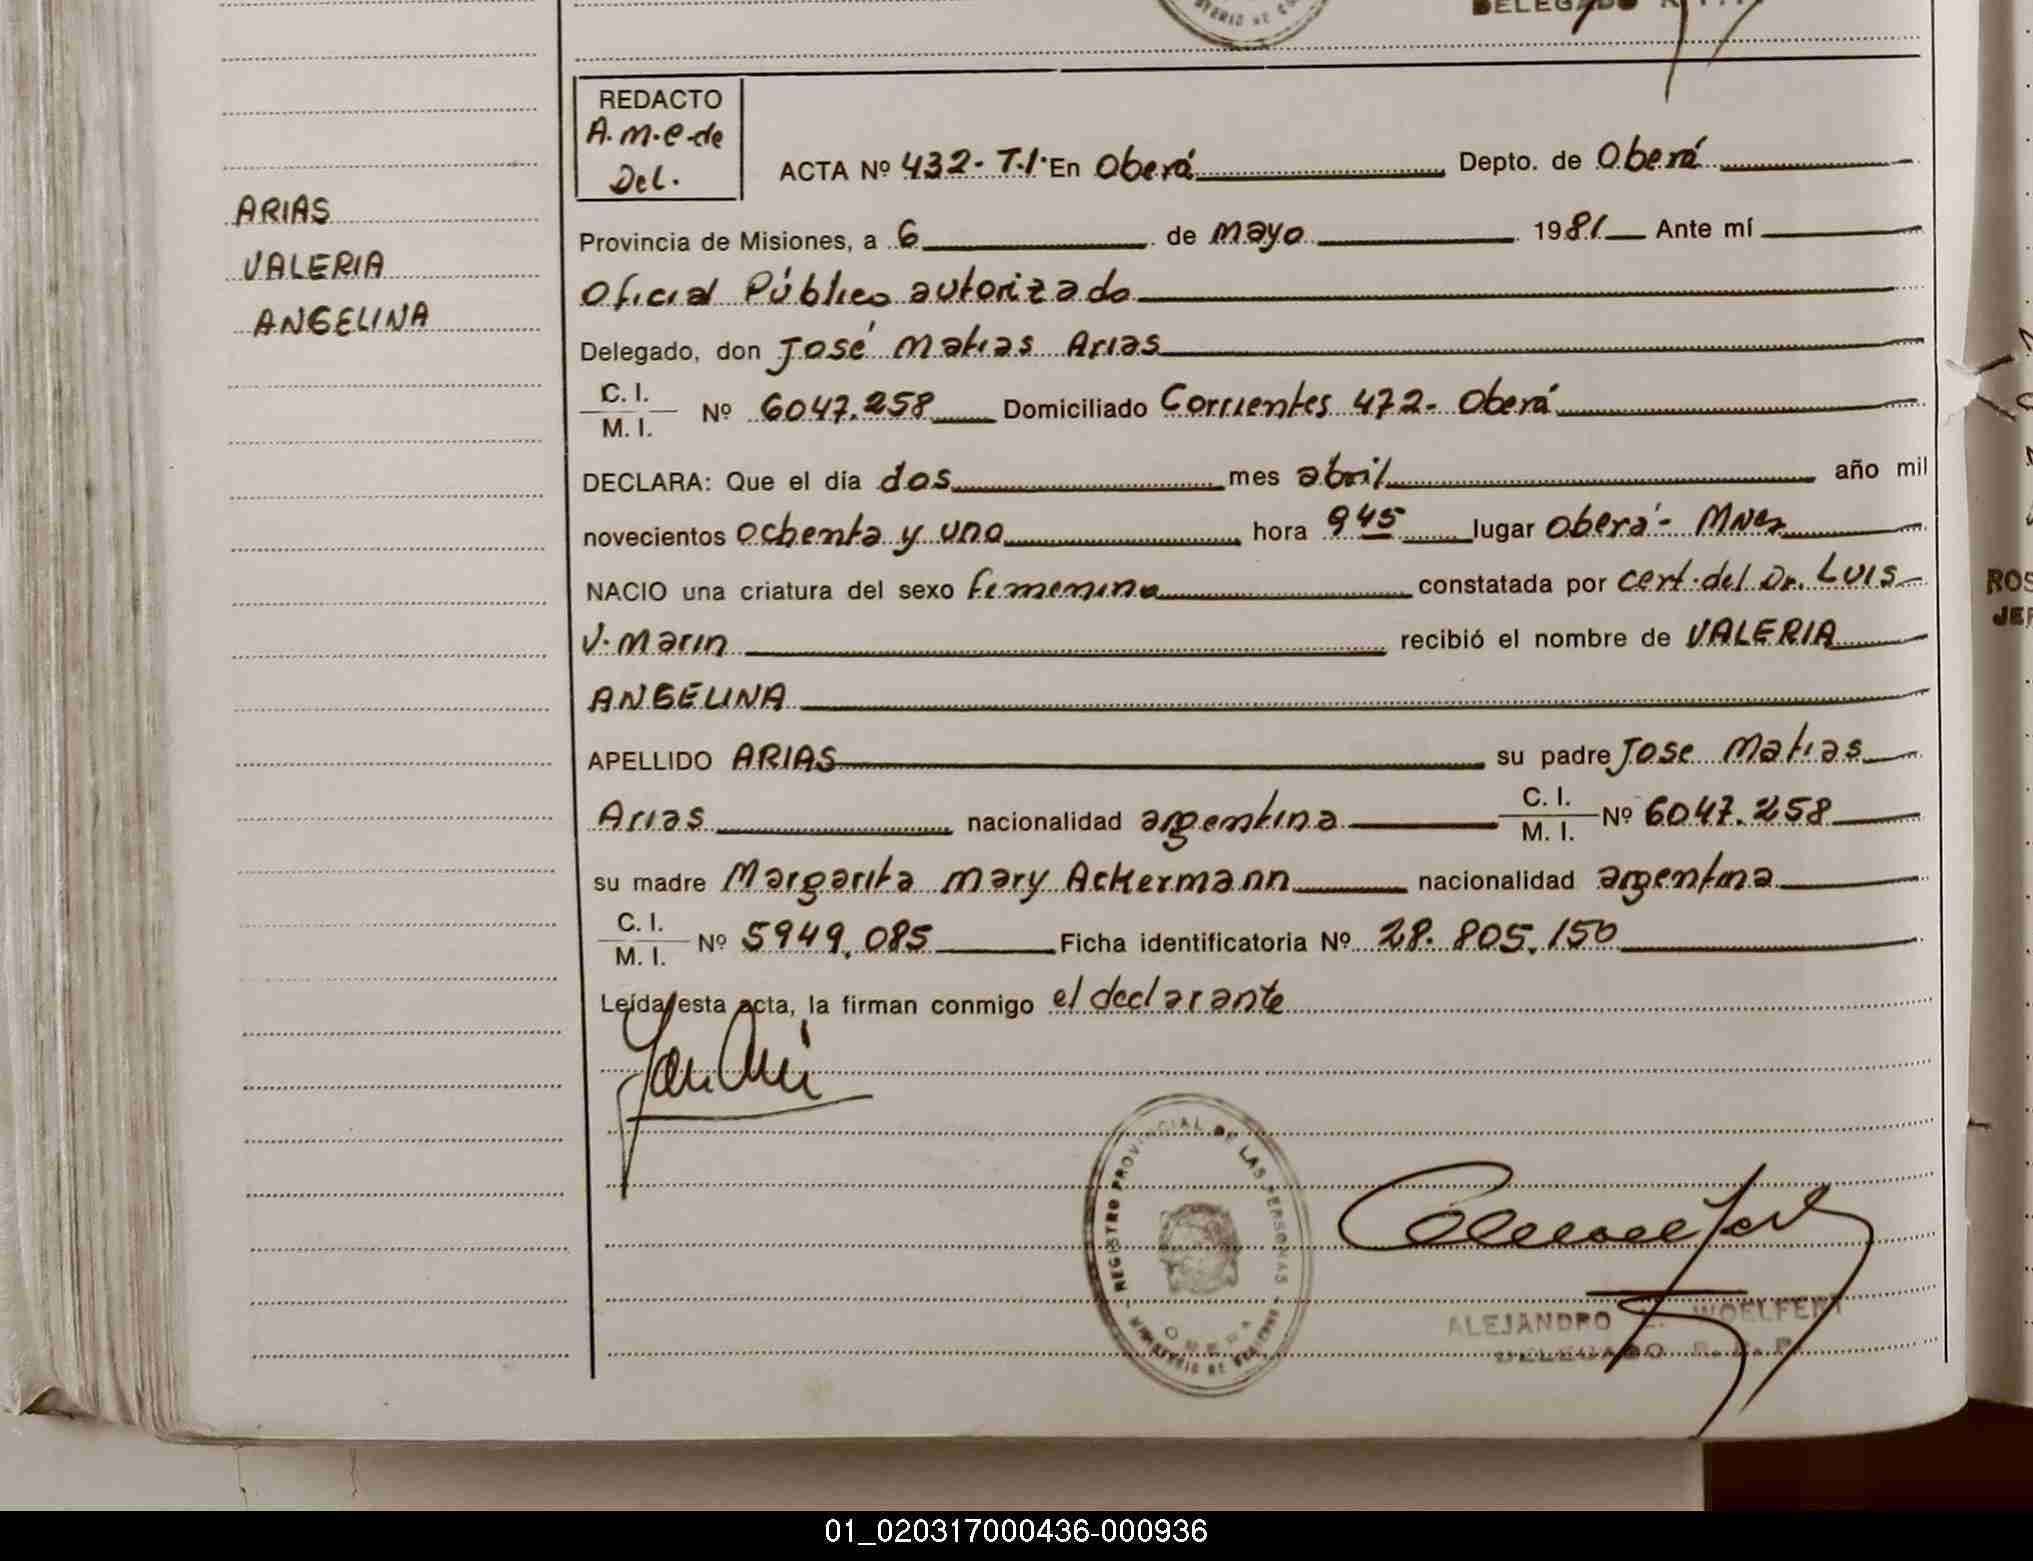 DELEGADO
REDACTO
A.M.E. de
Del.
ACTA Nº 432- T.I. En Oberá Depto. de Oberá
ARIAS
VALERIA
ANGELINA
Provincia de Misiones, a 6 de mayo 1981 Ante mí
Oficial Público autorizado
Delegado, don José Matias Arias
C. I.
M. I. Nº 6047.258 Domiciliado Corrientes 472- Oberá
DECLARA: Que el día dos mes abril año mil
novecientos ochenta y uno hora 9 45 lugar Oberá- Mnes
NACIO una criatura del sexo femenino constatada por cert. del Dr. Luis
V. Marin recibió el nombre de VALERIA
ANGELINA
APELLIDO ARIAS su padre Jose Matias
Arias nacionalidad argentina C. I. M. I. Nº 6047.258
su madre Margarita Mary Ackermann nacionalidad argentina
C. I.
M. I. Nº 5949.085 Ficha identificatoria Nº 28.805.150
Leída esta acta, la firman conmigo el declarante
REGISTRO PROVINCIAL DE LAS PERSONAS
OBERA
MINISTERIO DE GOBIERNO
ALEJANDRO WOELFERT
DELEGADO R. P. P.
ROS
JEF
01_020317000436-000936